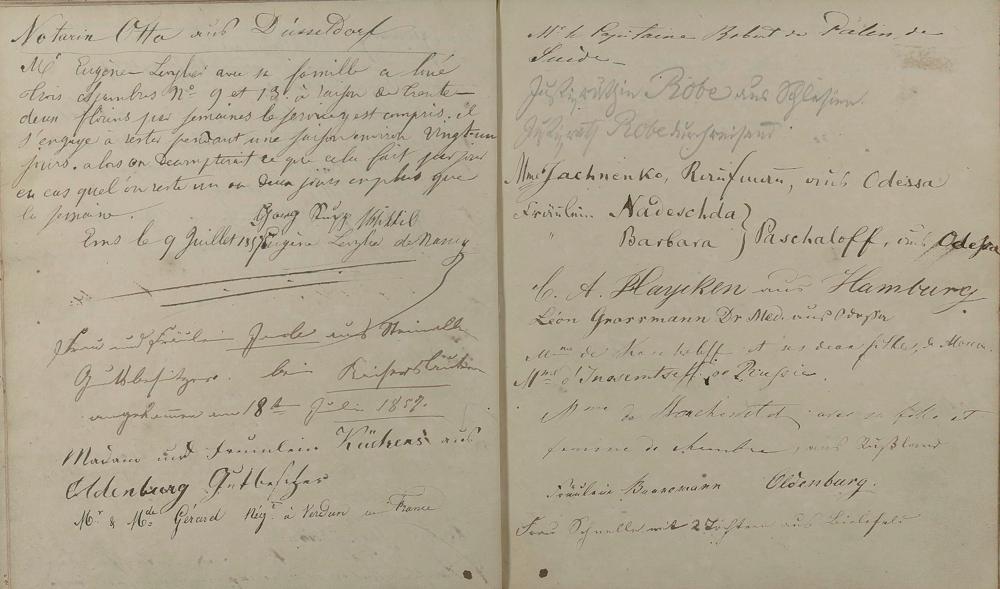 Notarin Otto aus Düsseldorf
Mr Eugène avec sa famille a loué
trois chambres No 9 et 13. à raison de trente
deux florins par semaines le service y est compris, il
s'engage à rester pendant une saison environ vingt-un
jours. alors on decompterait ce que cela fait par jour
en cas quel'on reste un ou deux jours en plus que
la semaine.
Georg
Ems le 9 Juillet 1857 Eugène de Nancy
Frau und Fräulein aus
Gutsbesitzer. bei Keiserslautern
angekommen am 18ten Juli 1857.
Madam und Fraulein Kückens aus
Oldenburg Gutbesitzer
Mr & Mde Gérard Négt à Verdun en France
Mr le Capitaine Robert de de
Suède
Justizräthin Robe aus Schlesien.
Justizrath Robe durchreisend.
Mme Jachnenko, Kaufmann, aus Odessa
Fräulein Nadeschda
" Barbara } Paschaloff, aus Odessa
C. A. Haycken aus Hamburg
Léon Grossmann Dr Med. aus Odessa
Mme de et ses deux filles, de Moscou
Mmes d'Inosemtseff de Russie.
Mme de avec sa fille et
femme de chambre, aus Rußland
Fräulein Oldenburg.
Frau Schnelle mit 2 Töchter aus Bielefeld